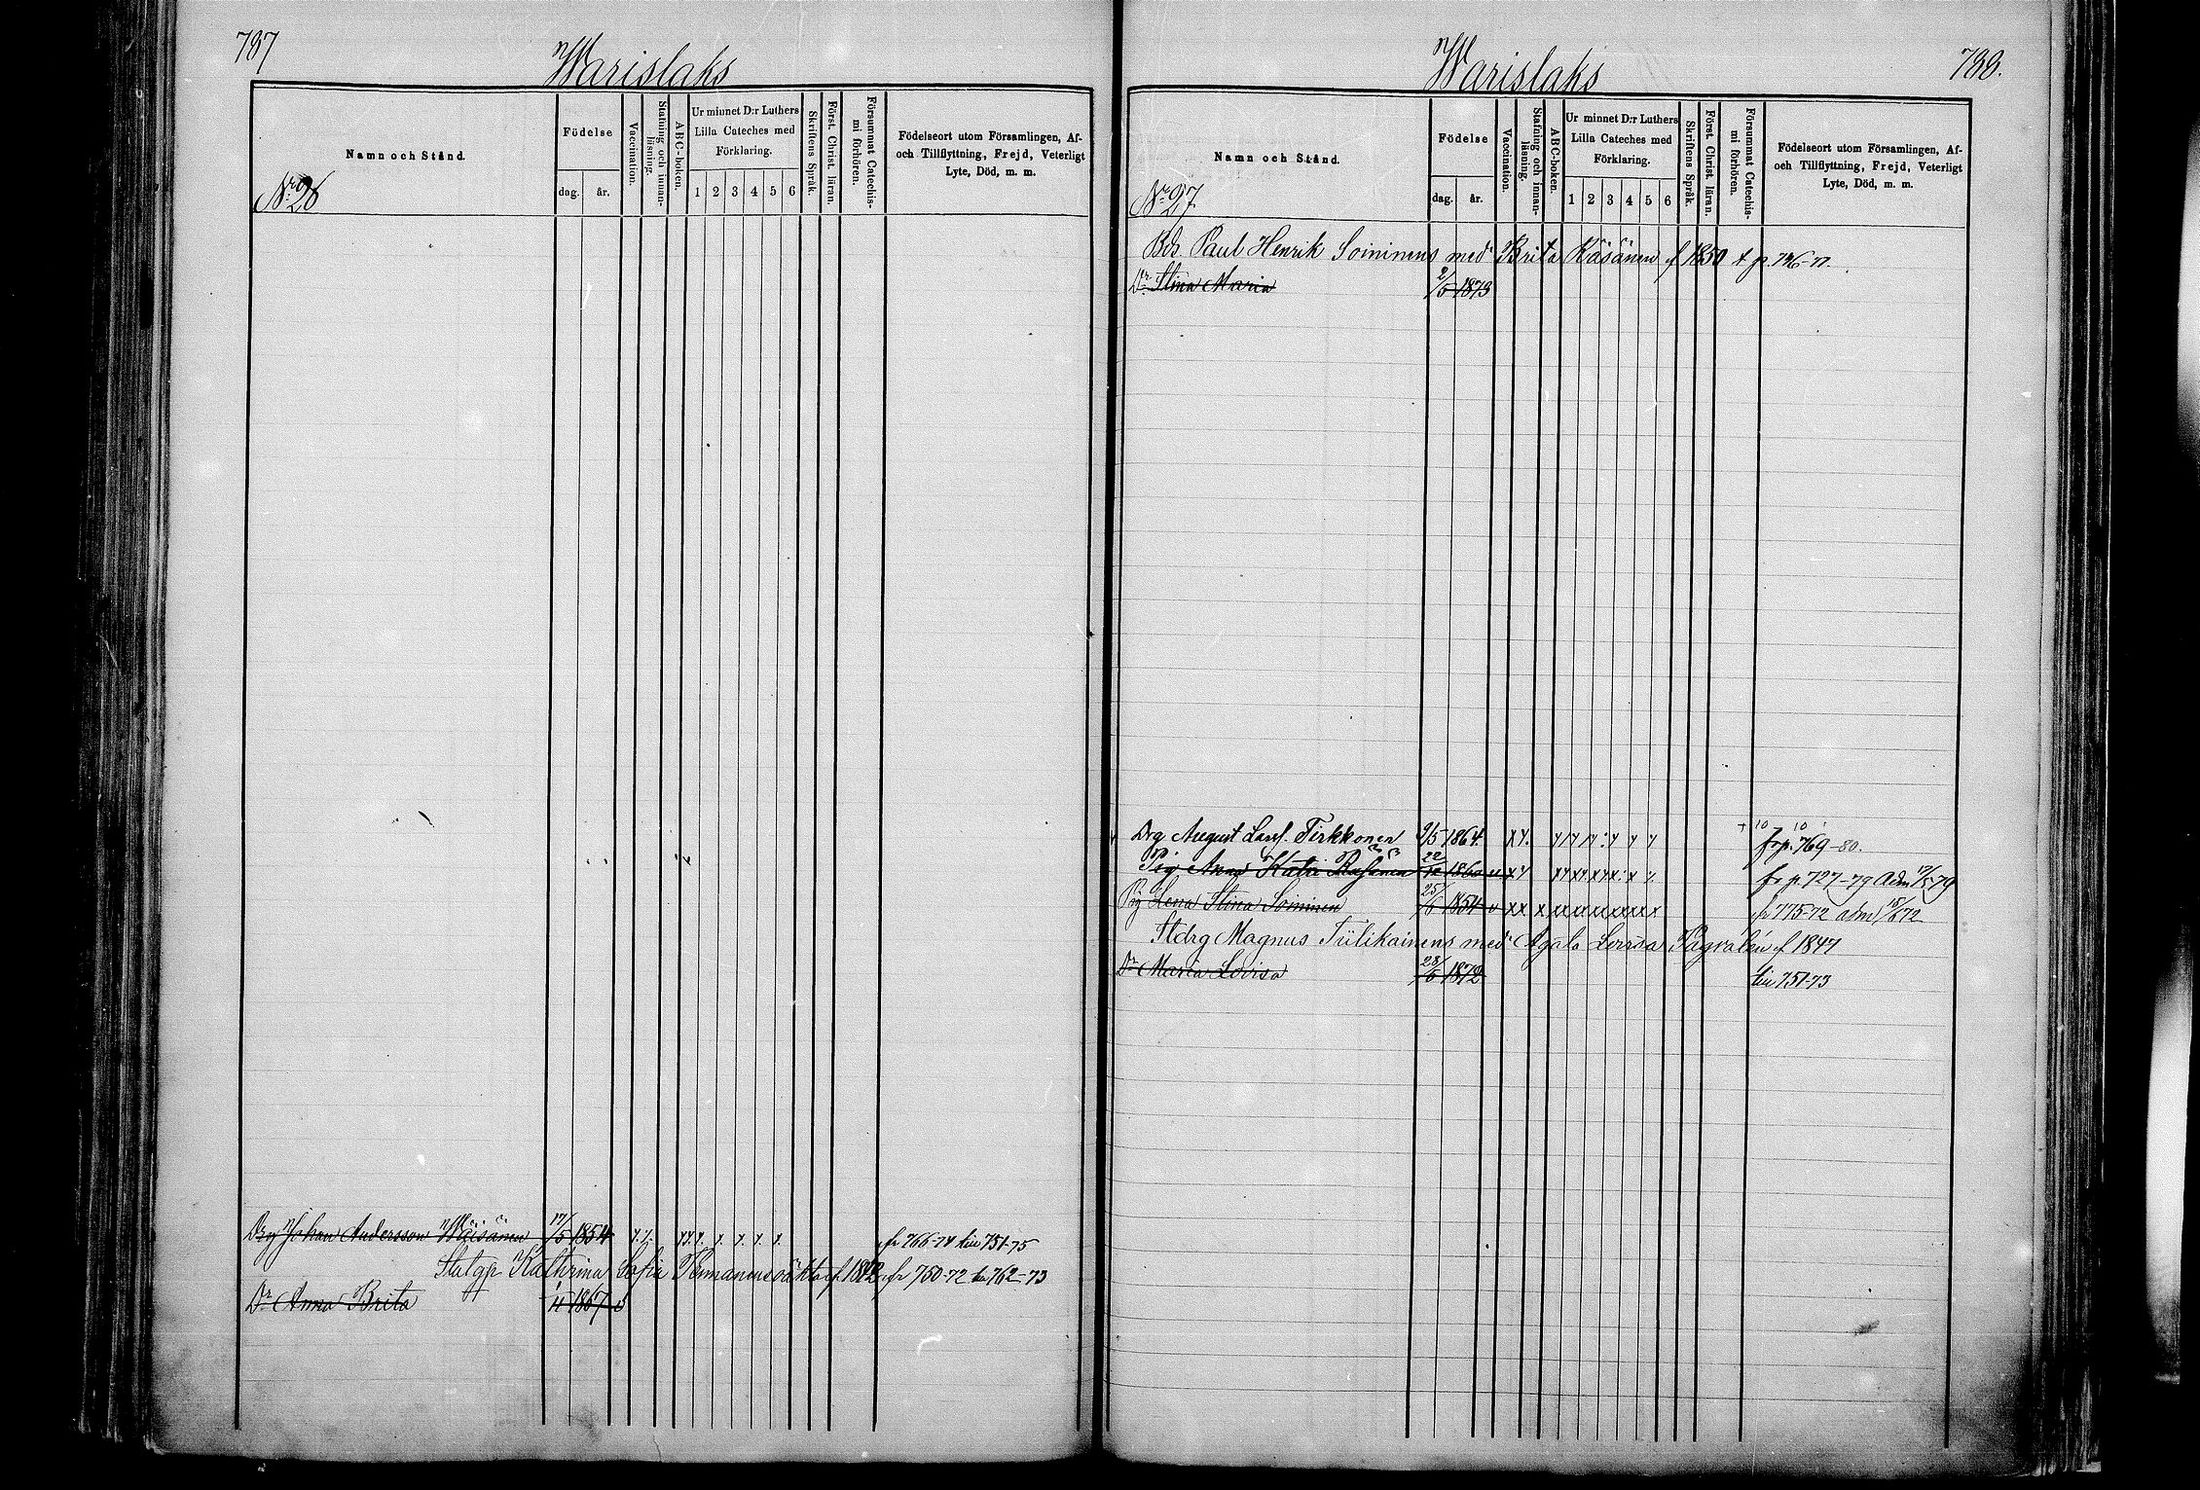 787
Warislaks
Namn och Stånd.
Födelse
dag. år.
Vaccination.
Stafning och innanläsning.
ABC-boken.
Ur minnet D:r Luthers Lilla Cateches med Förklaring.
1 2 3 4 5 6
Skriftens Språk.
Först. Christ. läran.
Försummat Catechismi förhören.
Födelseort utom Församlingen, Af- och Tillflyttning, Frejd, Veterligt Lyte, Död, m. m.
N:ro 26
Drg Johan Andersson Wäisänen 17/5 1854 fr 766-74 till 751-75
Sofia f. 1842 fr 750-72 762-73
Dr Anna Brita 1867
788.
Warislaks
Namn och Stånd.
Födelse
dag. år.
Vaccination.
Stafning och innanläsning.
ABC-boken.
Ur minnet D:r Luthers Lilla Cateches med Förklaring.
1 2 3 4 5 6
Skriftens Språk.
Först. Christ. läran.
Försummat Catechismi förhören.
Födelseort utom Församlingen, Af- och Tillflyttning, Frejd, Veterligt Lyte, Död, m. m.
N:ro 27
Paul Henrik Soininens med Brita Räsänen f 1850
Dr Stina Maria 2/5 1873
Drg August Tirkkonen 9/5 1864. fr p. 769-80.
Pig Anna Räsänen 22/12 1860 fr p. 727-79
Pig Lena Stina Soininen 25/6 1854 fr 775-72
Stdrg Magnus Tiilikainens med Agata Lovisa f 1847
Dr Maria Lovisa 28/6 1872 till 751-73